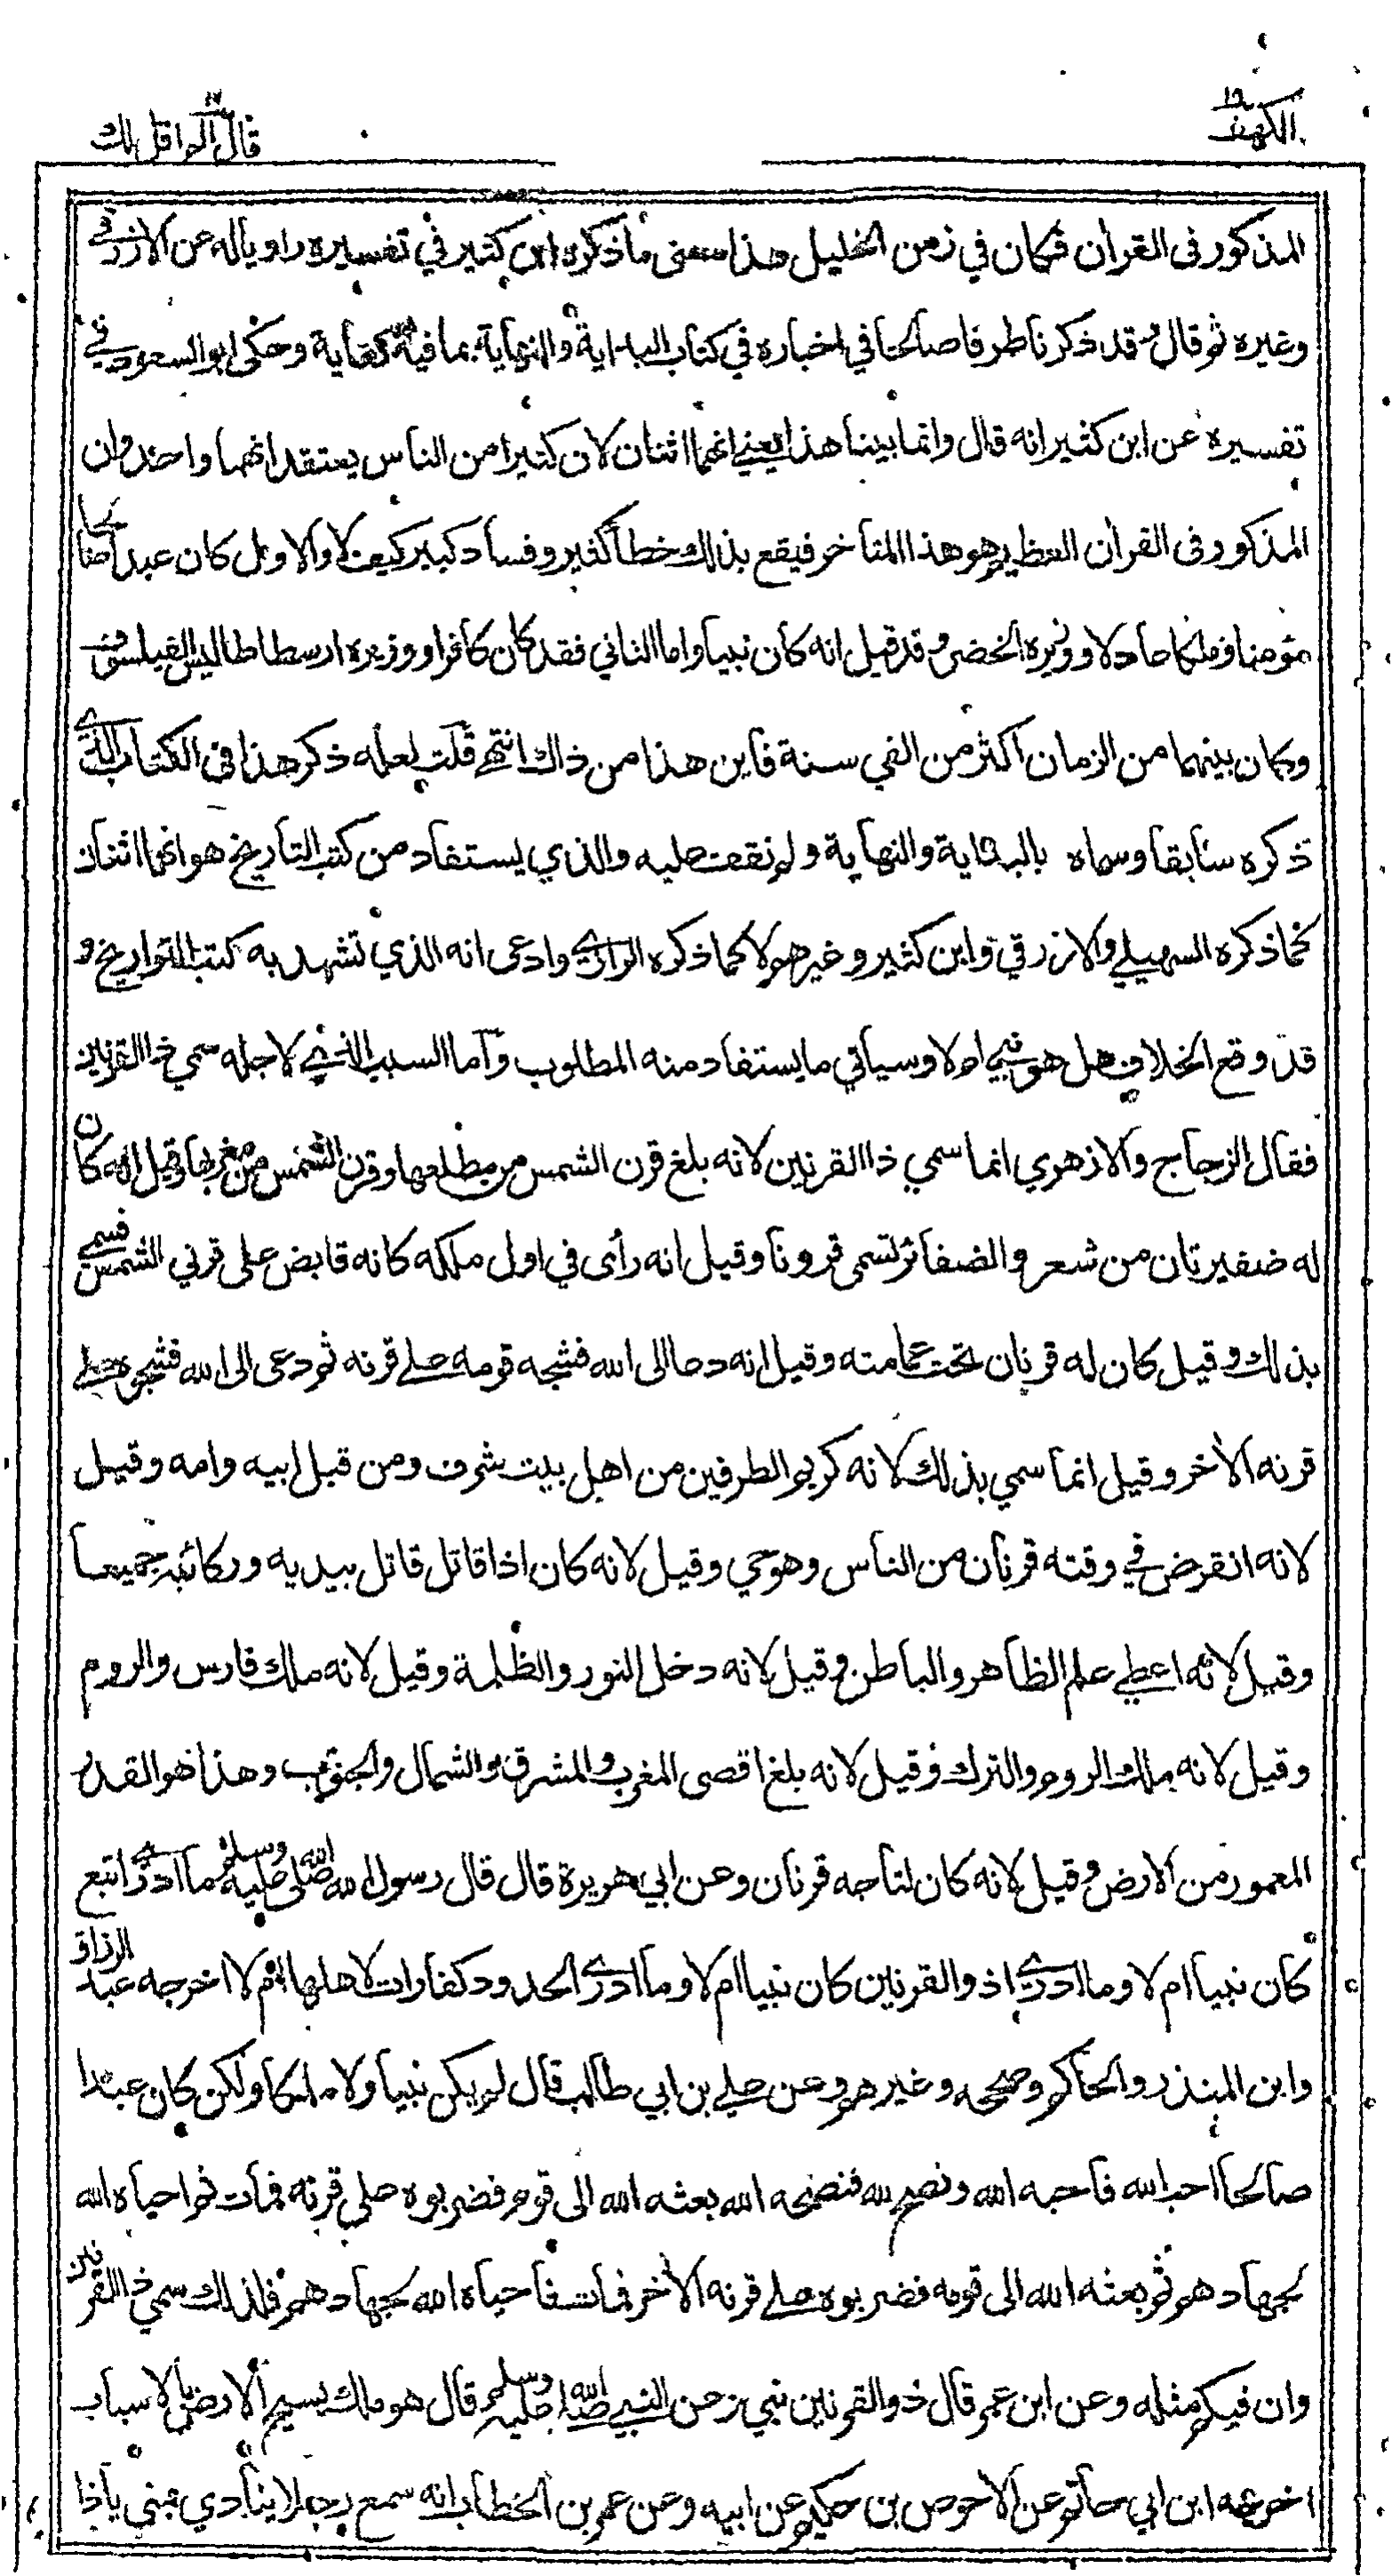 الكهف ١٨
قال الم اقل لك ١٦
المذكور فى القرأن فكان في زمن الخليل هذا معنى ما ذكره ابن كثير في تفسيره راويا له عن الازرقي
وغيره ثم قال وقد ذكرنا طرفا صالحا في اخباره في كتاب البداية والنهاية بما فيه كفاية وحكى ابو السعود في
تفسيره عن ابن كثير انه قال وانما بينا هذا يعني انهما اثنان لان كثيرا من الناس يعتقد انهما واحد وان
المذكور فى القرأن العظيم هو هذا المتأخر فيقع بذلك خطأ كثير وفساد كبير كيف لا والاول كان عبدا صالحا
مؤمنا وملكا عادلا ووزيره الخضر وقد قيل انه كان نبيا واما الثاني فقد كان كافرا ووزيره ارسطاطاليس الفيلسوف
وكان بينهما من الزمان اكثر من الفي سنة فاين هذا من ذاك انتهى قلت لعله ذكر هذا في الكتاب الذي
ذكره سابقا وسماه بالبداية والنهاية ولم نقف عليه والذي يستفاد من كتب التأريخ هو انهما اثنان
كما ذكره السهيلي والازرقي وابن كثير وغيرهم لا كما ذكره الرازي وادعى انه الذي تشهد به كتب التواريخ و
قد وقع الخلاف هل هو نبي ام لا وسيأتي ما يستفاد منه المطلوب وأما السبب الذي لاجله سمي ذا القرنين
فقال الزجاج والازهري انما سمي ذا القرنين لانه بلغ قرن الشمس من مطلعها وقرن الشمس من مغربها وقيل انه كان
له ضفيرتان من شعر والضفائر تسمى قرونا وقيل انه رأى في اول ملكه كانه قابض على قرني الشمس فسمي
بذلك وقيل كان له قرنان تحت عمامته وقيل انه دعا الى الله فشجه قومه على قرنه ثم دعى الى الله فشجوه على
قرنه الأخر وقيل انما سمي بذلك لانه كريم الطرفين من اهل بيت شرف ومن قبل ابيه وامه وقيل
لانه انقرض في وقته قرنان من الناس وهو حي وقيل لانه كان اذا قاتل قاتل بيديه وركائبه جميعا
وقيل لانه اعطي علم الظاهر والباطن وقيل لانه دخل النور والظلمة وقيل لانه ملك فارس والروم
وقيل لانه ملك الروم والترك وقيل لانه بلغ اقصى المغرب والمشرق والشمال والجنوب وهذا هو القدر
المعمور من الارض وقيل لانه كان لتاجه قرنان وعن ابي هريرة قال قال رسول الله صلى الله عليه وسلم ما ادري أتبع
كان نبيا ام لا وما ادري اذو القرنين كان نبيا ام لا وما ادري الحدود كفارات لاهلها ام لا اخرجه عبد الرزاق
وابن المنذر والحاكم وصححه وغيرهم وعن علي بن ابي طالب قال لم يكن نبيا ولا ملكا ولكن كان عبدا
صالحا احب الله فاحبه الله ونصح لله فنصحه الله بعثه الله الى قوم فضربوه على قرنه فمات ثم احياه الله
لجهادهم ثم بعثه الله الى قومه فضربوه على قرنه الأخر فمات فاحياه الله لجهادهم فلذلك سمي ذا القرنين
وان فيكم مثله وعن ابن عمر قال ذو القرنين نبي وعن النبي صلى الله عليه وسلم قال هو ملك يسيح الارض بالاسباب
اخرجه ابن ابي حاتم عن الاحوص بن حكيم عن ابيه وعن عمر بن الخطاب انه سمع رجلا ينادي بمنى ياذا